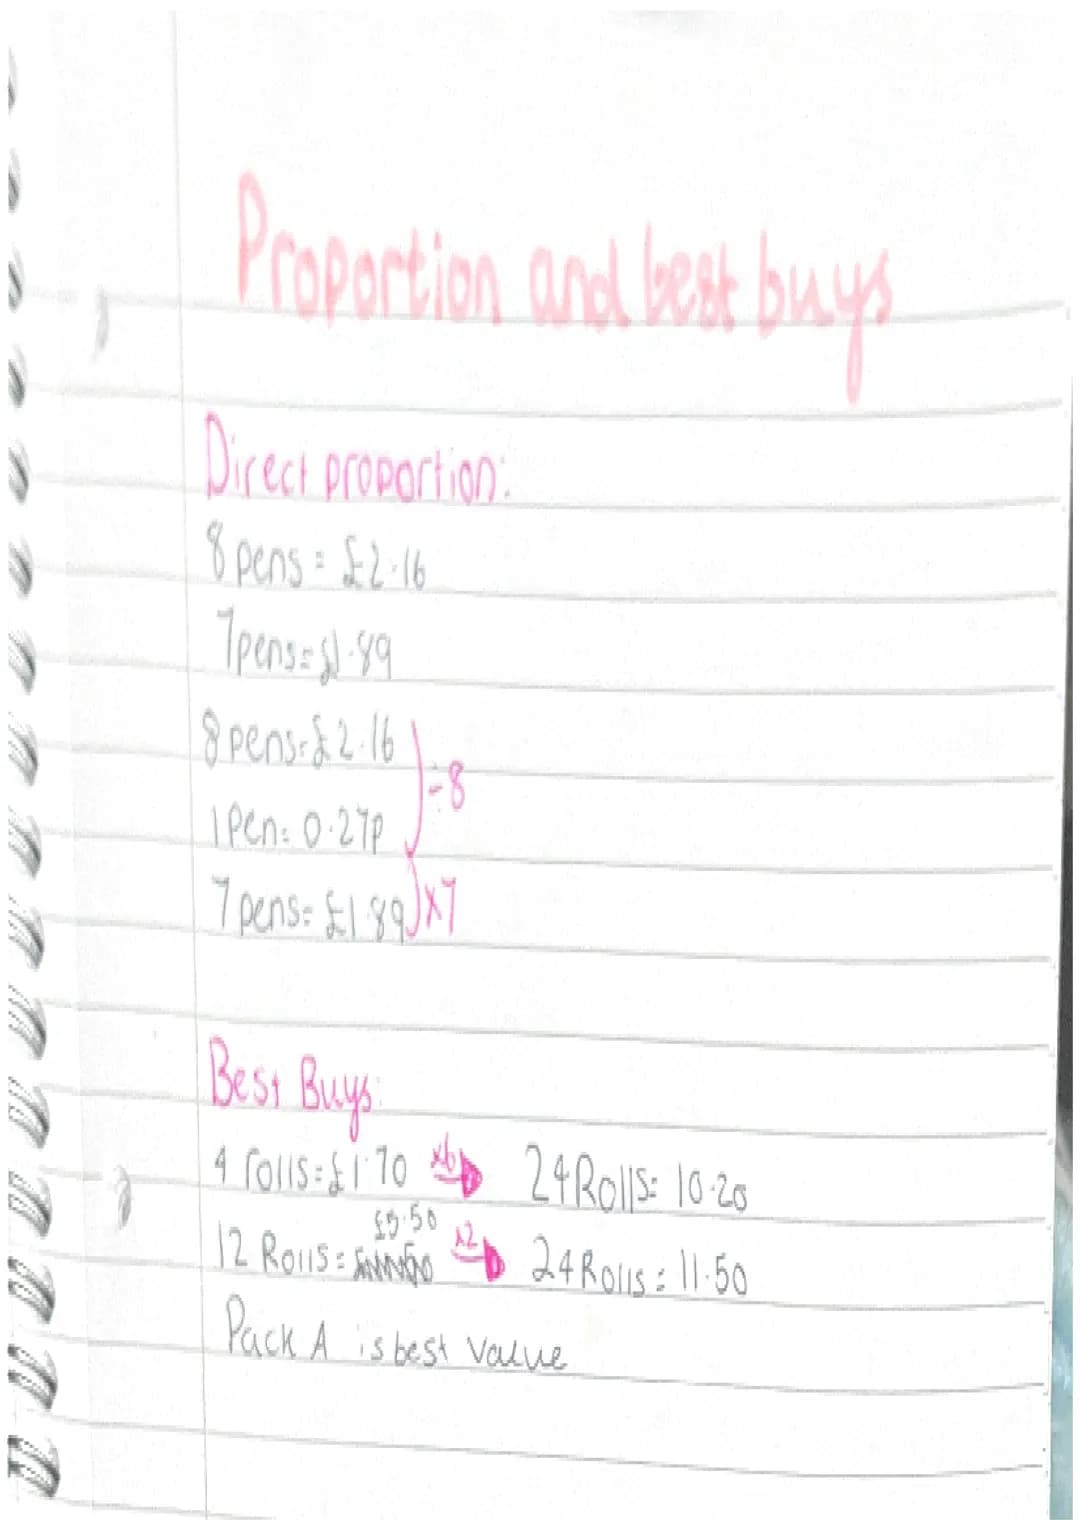 Proportion and best buys
Direct proportion:
8 pens = £2.16
7pens=£1.89
8 pens=£2.16
÷8
1 Pen= 0.27p
7 pens= £1.89 x7
Best Buys:
4 rolls=£1.70 x6 24 Rolls= 10.20
£5.50
12 Rolls= x2 24 Rolls = 11.50
Pack A is best value